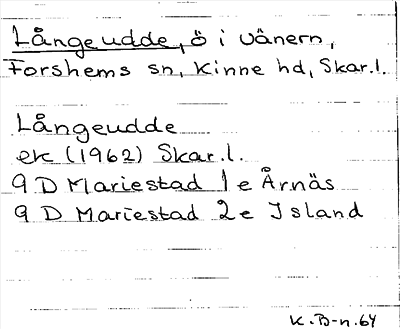 Långeudde, ö i Vänern,
Forshems sn, Kinne hd, Skar.l.
Långeudde
ek (1962) Skar.l.
9 D Mariestad 1 e Årnäs
9 D Mariestad 2 e Island
K.B-n.64